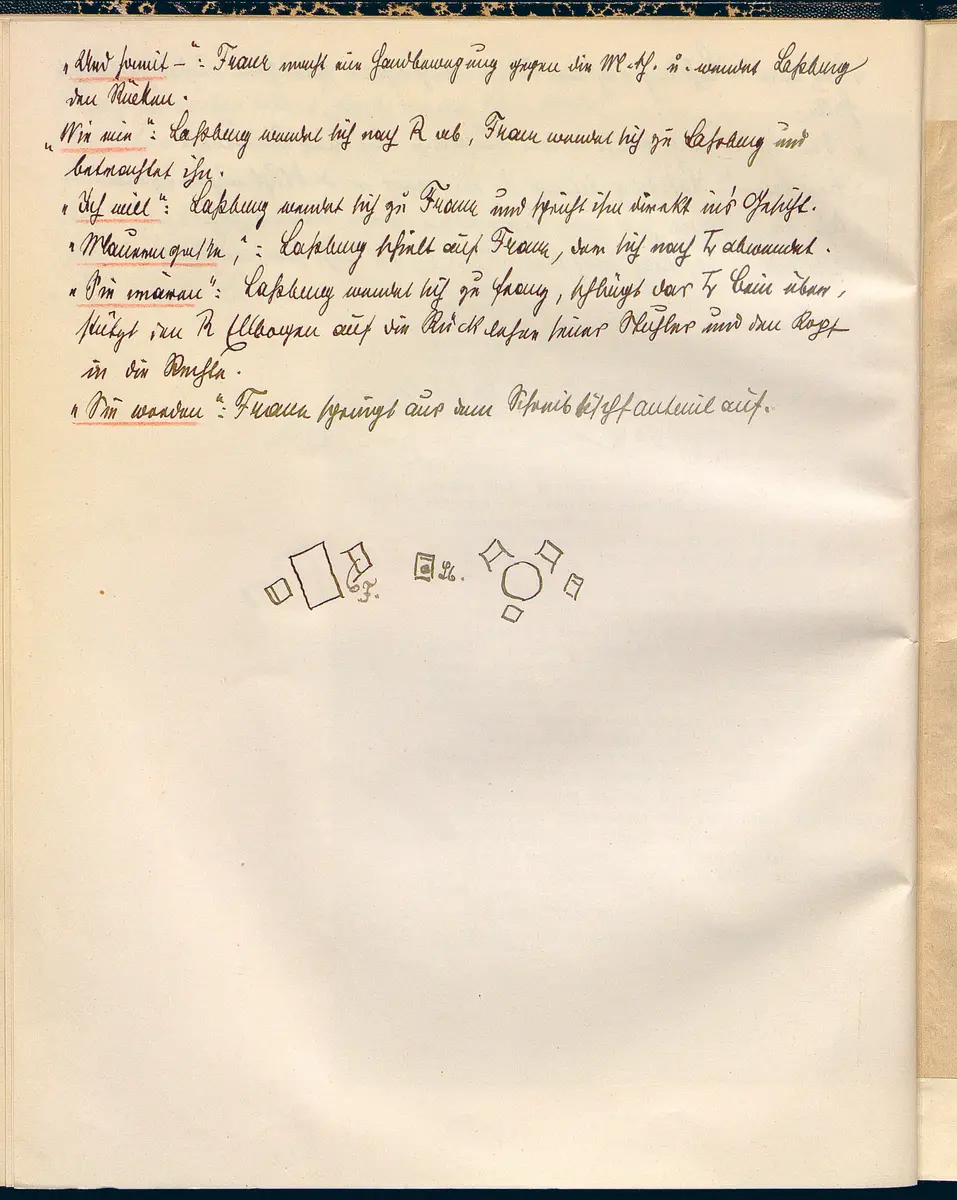 „Und somit –“: Franz macht eine Handbewegung gegen die M.-th. u. wendet Laßburg
den Rücken.
„Wie ein“: Laßburg wendet sich nach R ab, Franz wendet sich zu Laßburg und
betrachtet ihn.
„Ich will“: Laßburg wendet sich zu Franz und spricht ihm direkt in's Gesicht.
„Mauern“: Laßburg schielt auf Franz, der sich nach L abwendet.
„Sie waren“: Laßburg wendet sich zu Franz, schlägt das L Bein über,
stützt den R Ellbogen auf die Rücklehne seines Stuhles und den Kopf
in die Rechte.
„Sie werden“: Franz springt aus dem Schreibtischfauteuil auf.
F. Lb.